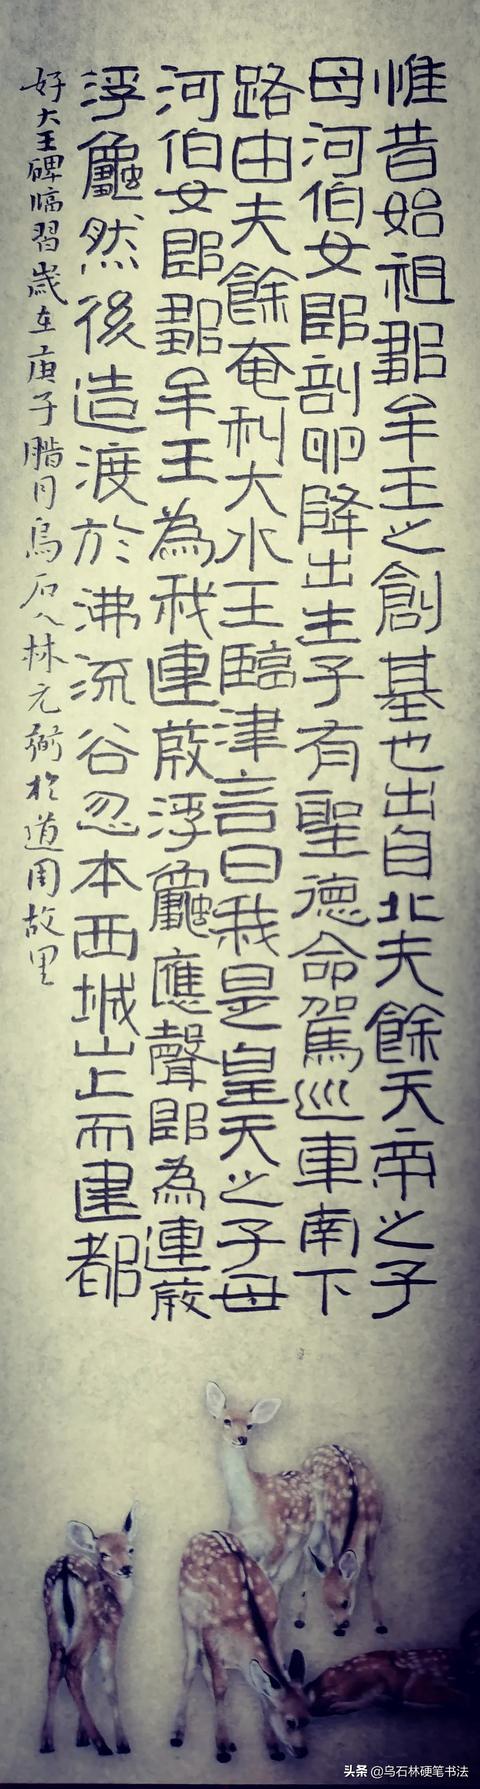 惟昔始祖鄒牟王之創基也出自北夫餘天帝之子
母河伯女郎剖卵降出生子有聖德命駕巡車南下
路由夫餘奄利大水王臨津言曰我是皇天之子母
河伯女郎鄒牟王為我連葭浮龜應聲即為連葭
浮龜然後造渡於沸流谷忽本西城山上而建都
好大王碑臨習歲在庚子腊月烏石人林元於道用故里
头条 @乌石林硬笔书法